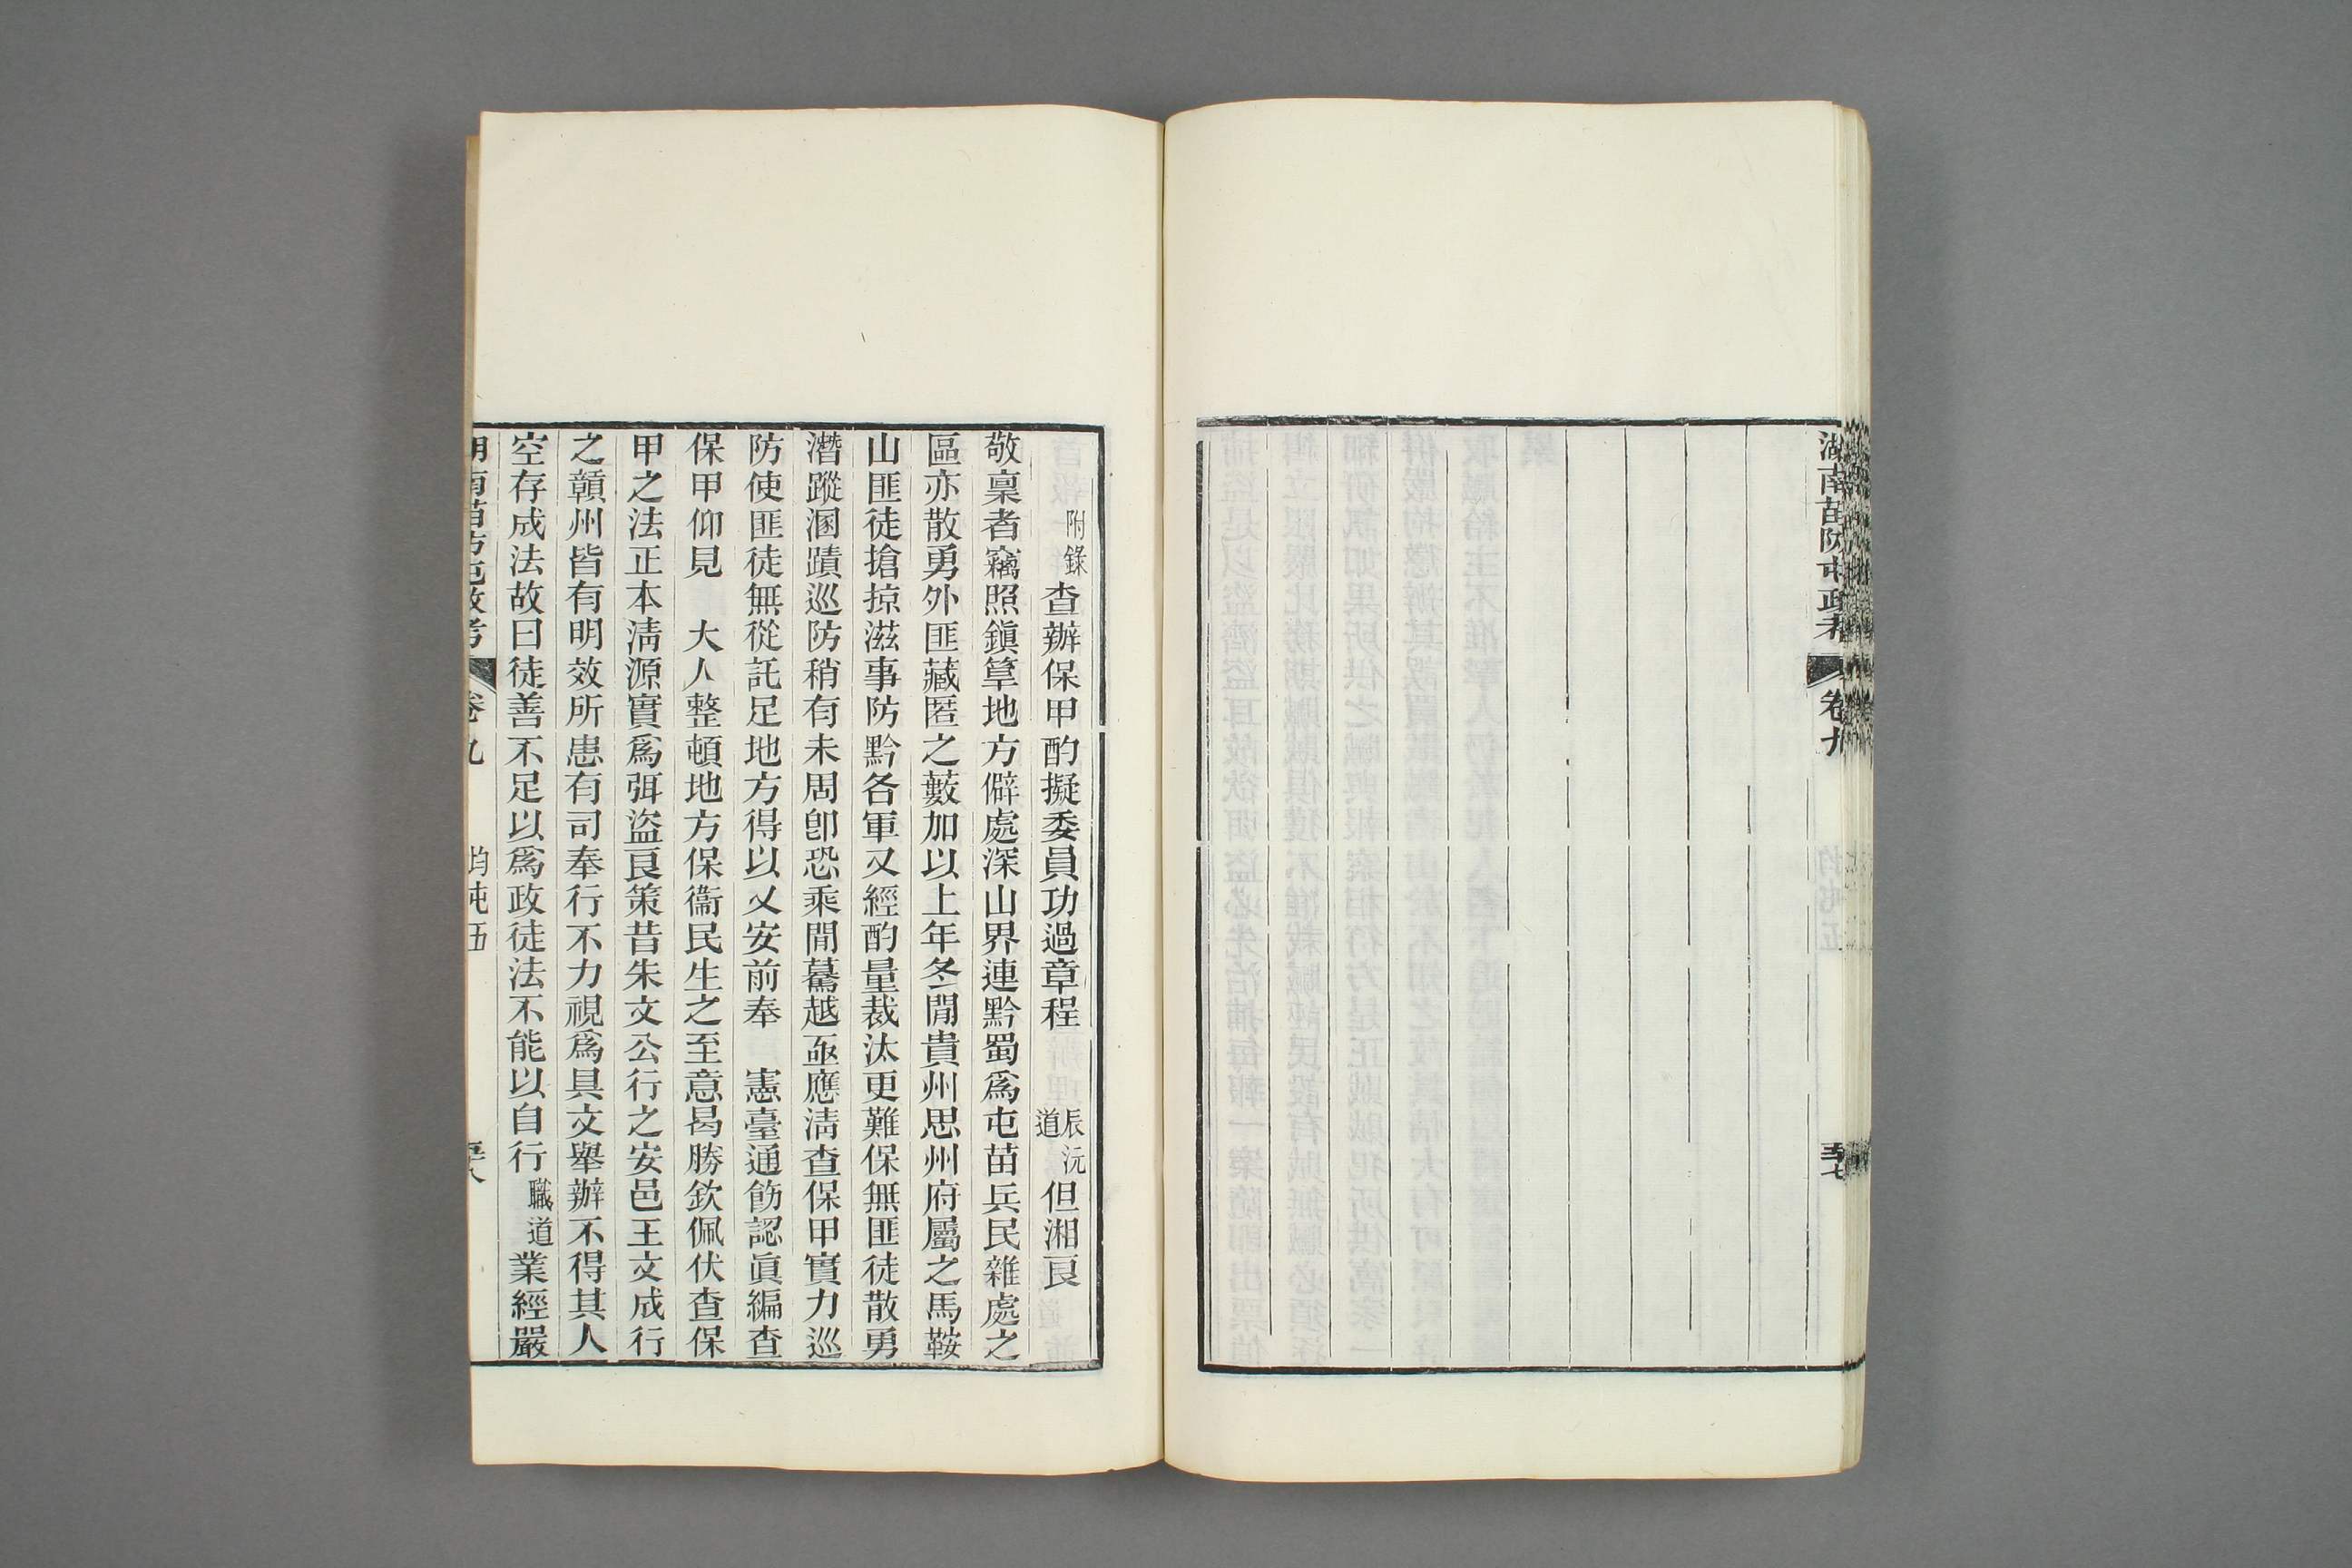 湖南苗防屯政考 卷九 五十七
附錄 查辦保甲酌擬委員功過章程 辰沅道 但湘良
敬稟者竊照鎭筸地方僻處深山界連黔蜀爲屯苗兵民雜處之
區亦散勇外匪藏匿之藪加以上年冬閒貴州思州府屬之馬鞍
山匪徒搶掠滋事防黔各軍又經酌量裁汰更難保無匪徒散勇
潛蹤溷蹟巡防稍有未周卽恐乘閒驀越亟應淸查保甲實力巡
防使匪徒無從託足地方得以乂安前奉 憲臺通飭認眞編查
保甲仰見 大人整頓地方保衞民生之至意曷勝欽佩伏查保
甲之法正本淸源實爲弭盜良策昔朱文公行之安邑王文成行
之贛州皆有明效所患有司奉行不力視爲具文舉辦不得其人
空存成法故曰徒善不足以爲政徒法不能以自行職道業經嚴
湖南苗防屯政考 卷九 均屯五 五十八